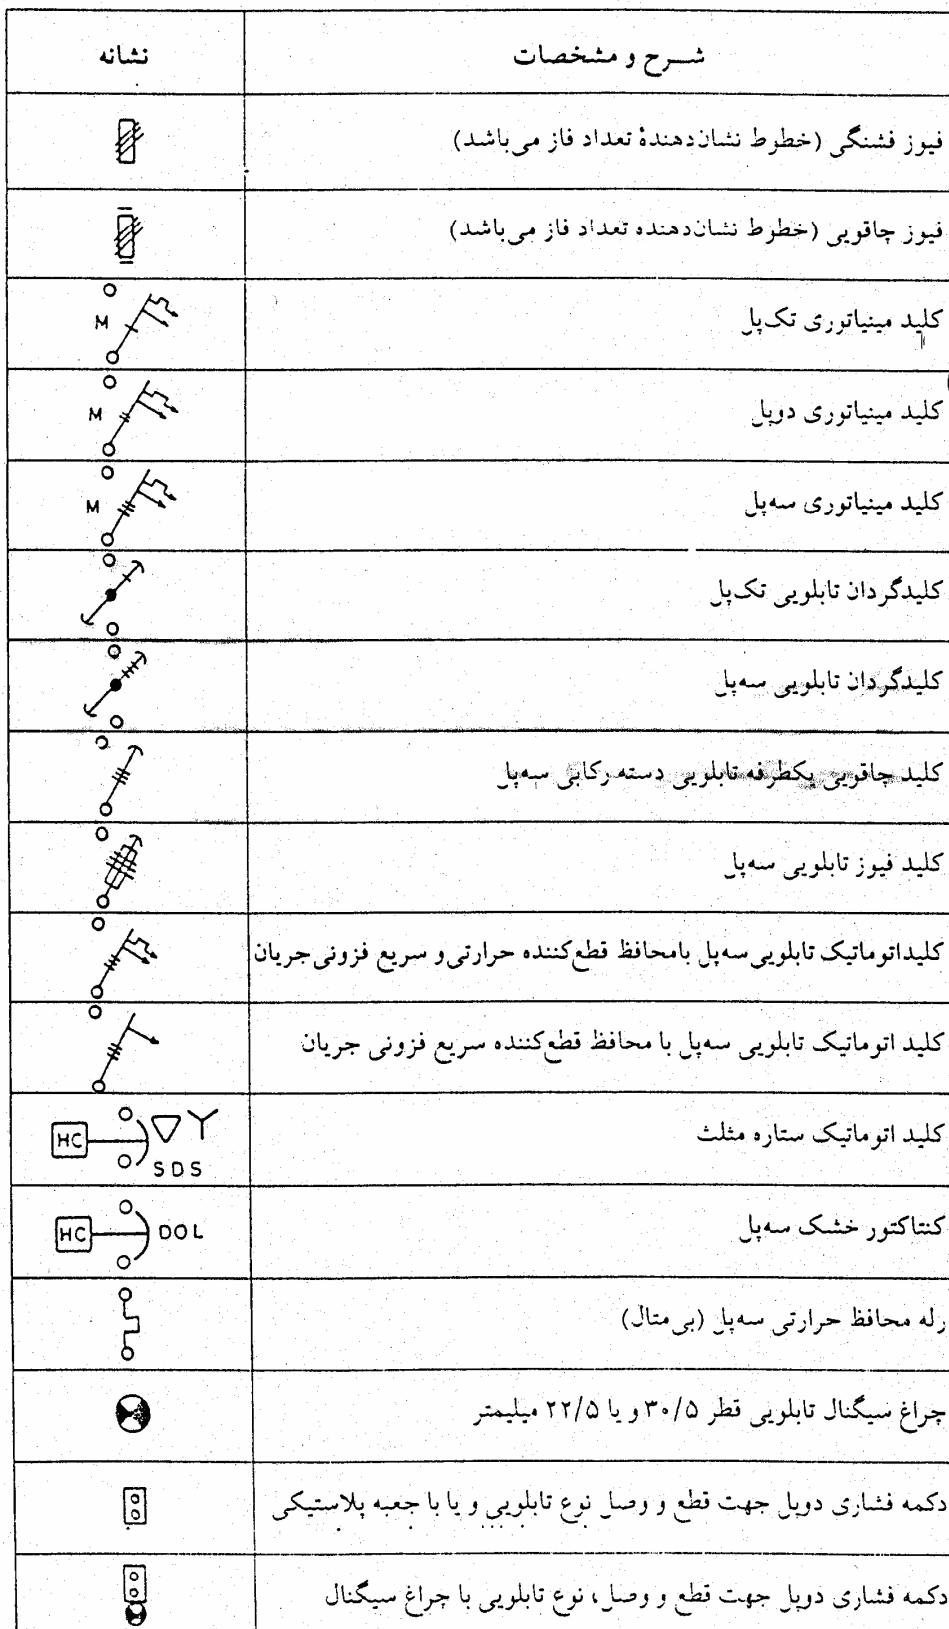 شرح و مشخصات
نشانه
فیوز فشنگی (خطوط نشان‌دهندهٔ تعداد فاز می‌باشد)
فیوز چاقویی (خطوط نشان‌دهنده تعداد فاز می‌باشد)
کلید مینیاتوری تک‌پل
M
کلید مینیاتوری دوپل
M
کلید مینیاتوری سه‌پل
M
کلیدگردان تابلویی تک‌پل
کلیدگردان تابلویی سه‌پل
کلید چاقویی یکطرفه تابلویی دسته رکابی سه‌پل
کلید فیوز تابلویی سه‌پل
کلید اتوماتیک تابلویی سه‌پل بامحافظ قطع‌کننده حرارتی و سریع فزونی جریان
کلید اتوماتیک تابلویی سه‌پل با محافظ قطع‌کننده سریع فزونی جریان
کلید اتوماتیک ستاره مثلث
HC
SDS
کنتاکتور خشک سه‌پل
HC DOL
رله محافظ حرارتی سه‌پل (بی‌متال)
چراغ سیگنال تابلویی قطر ۳۰/۵ و یا ۲۲/۵ میلیمتر
دکمه فشاری دوپل جهت قطع و وصل نوع تابلویی و یا با جعبه پلاستیکی
دکمه فشاری دوپل جهت قطع و وصل، نوع تابلویی با چراغ سیگنال